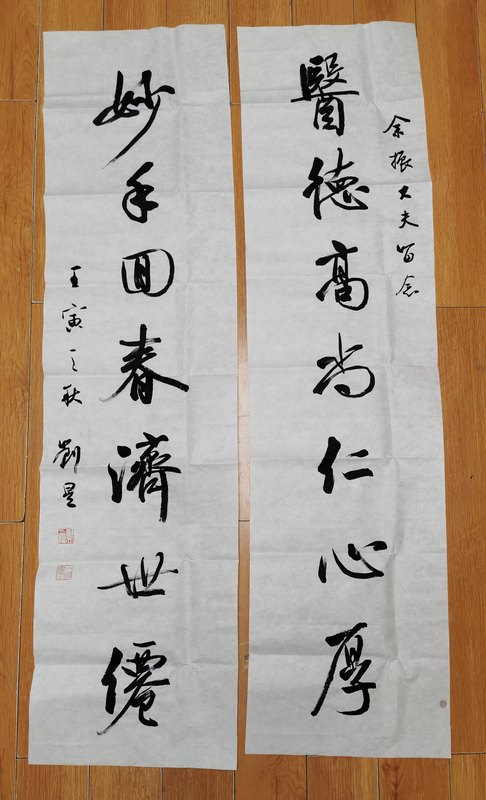 余振大夫留念
醫德高尚仁心厚
妙手回春濟世僊
壬寅之秋 劉星